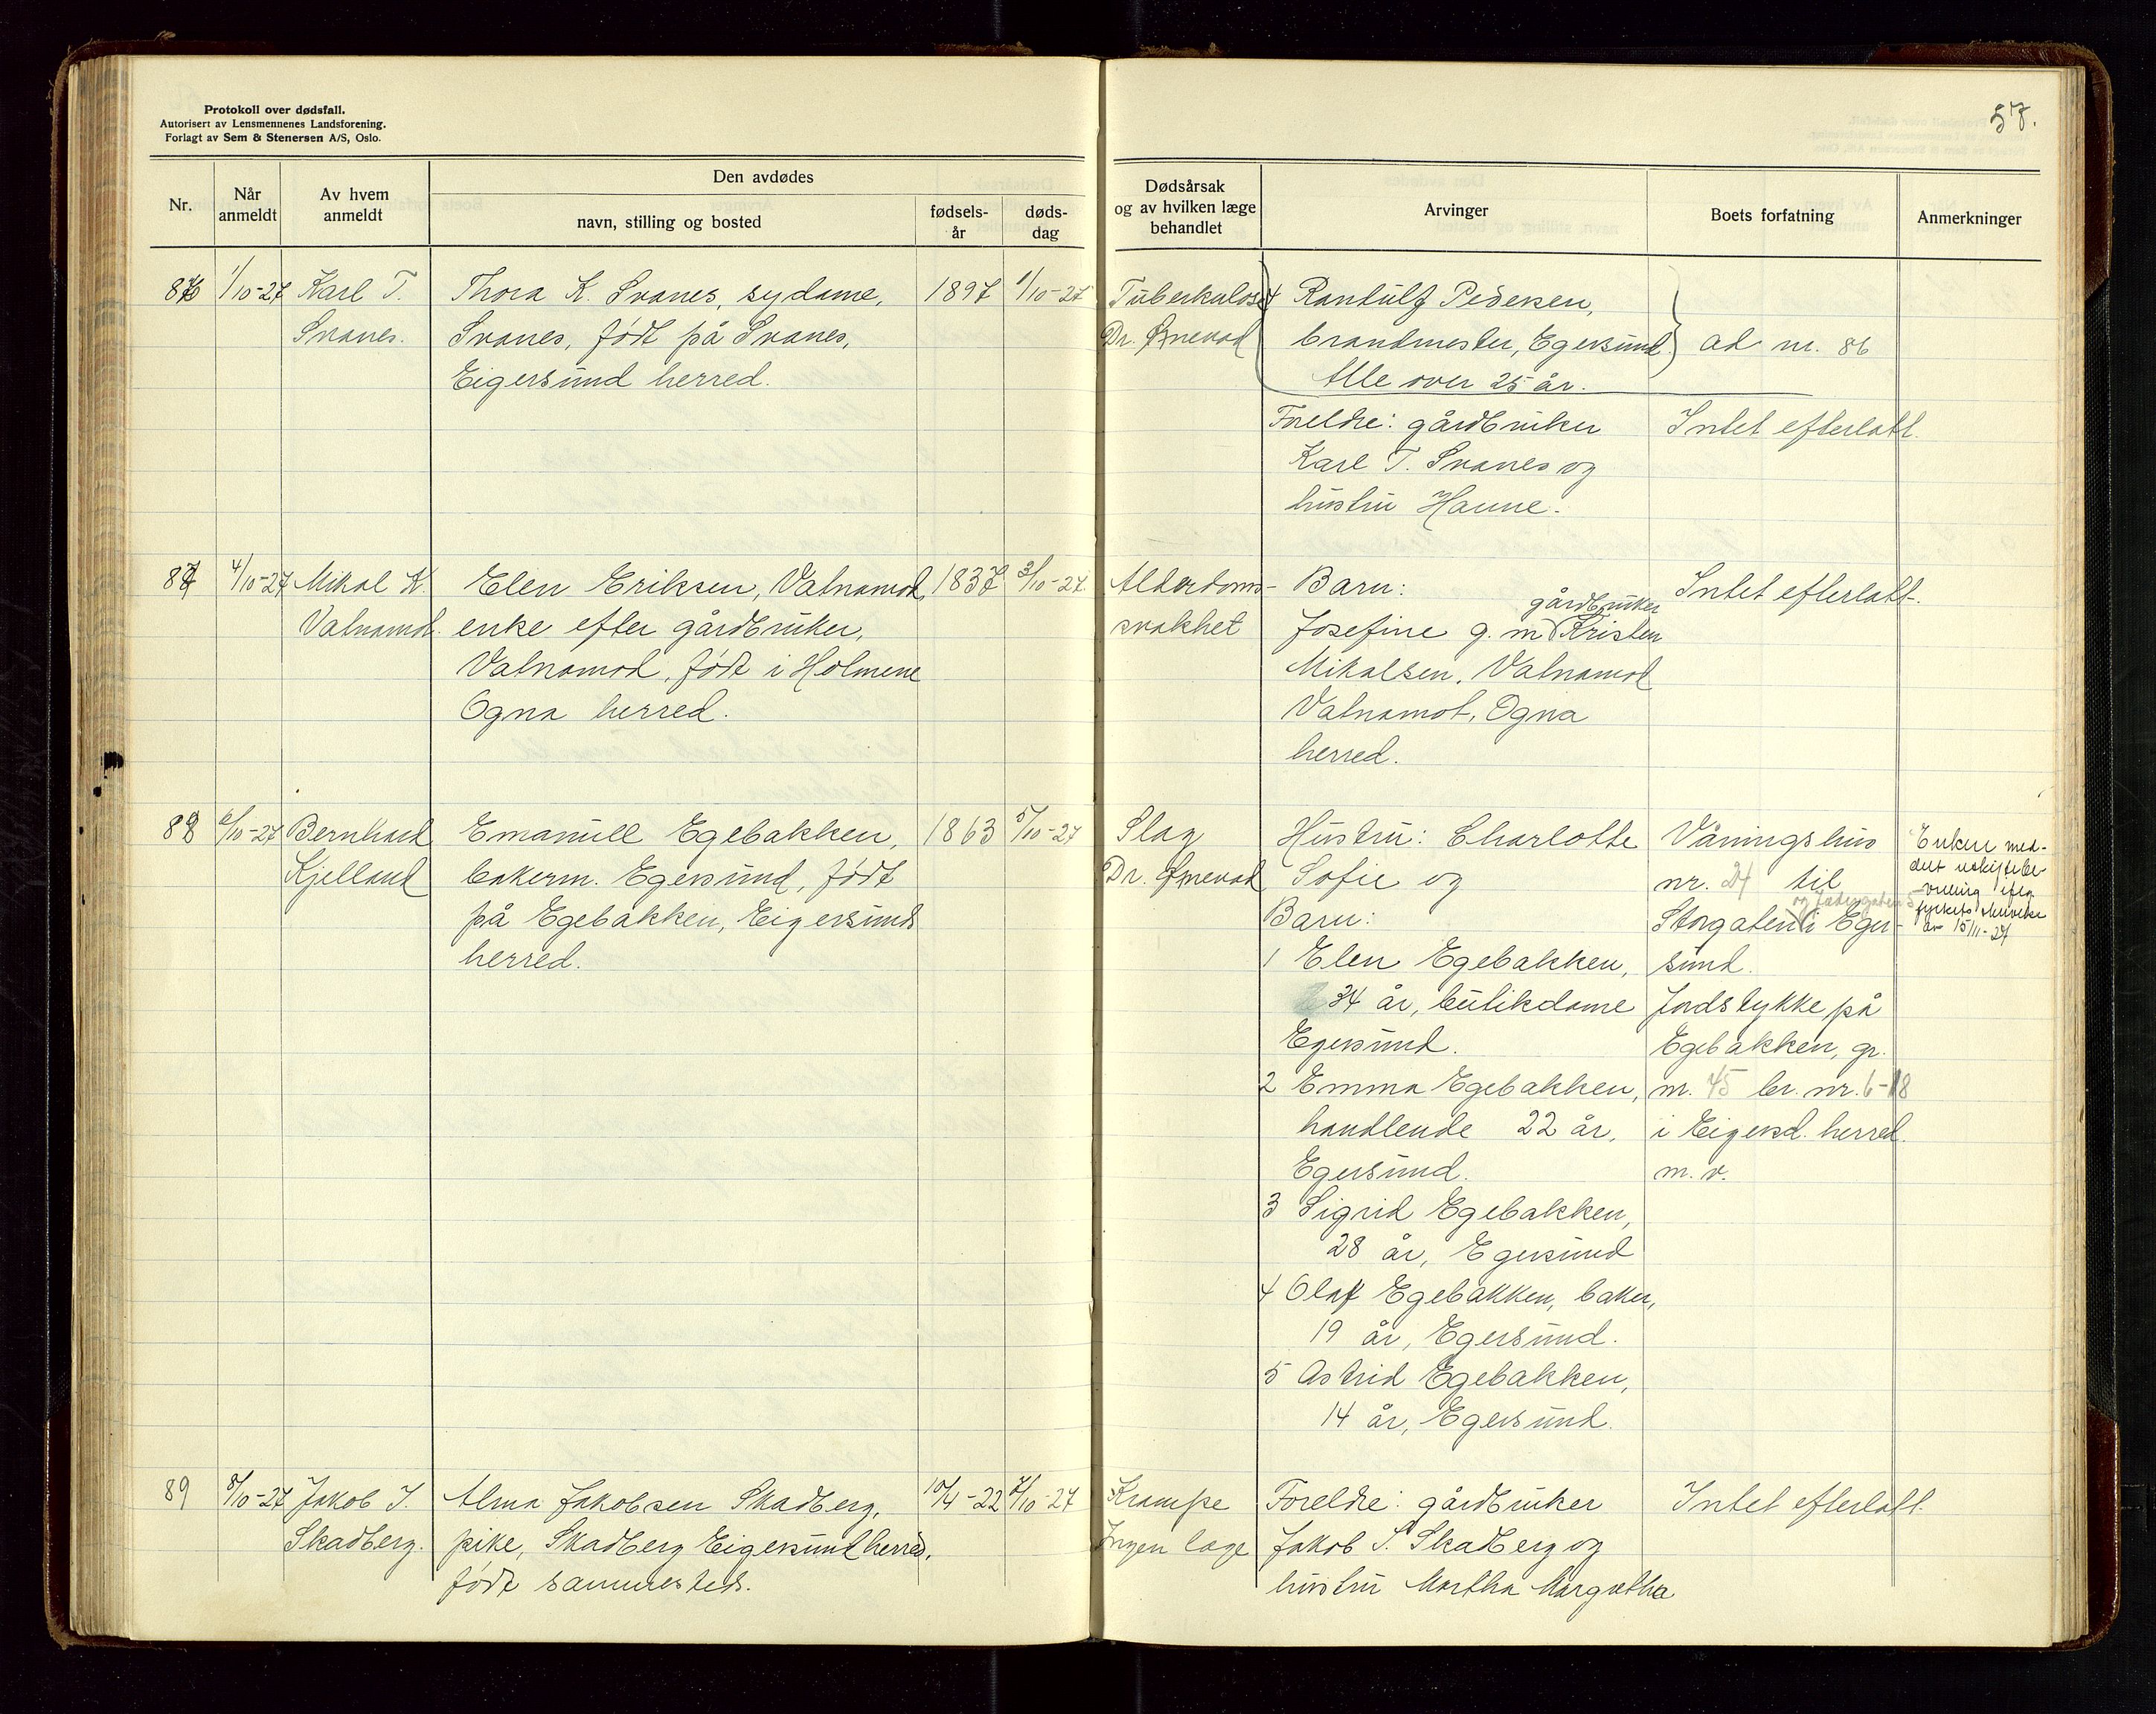 Protokoll over dødsfall.
Autorisert av Lensmennenes Landsforening.
Forlagt av Sem & Stenersen A/S, Oslo.
57.
Nr.
Når anmeldt
Av hvem anmeldt
Den avdødes
navn, stilling og bosted
fødsels-
år
døds-
dag
Dødsårsak
og av hvilken læge
behandlet
Arvinger
Boets forfatning
Anmerkninger
86
1/10-27
Karl T.
Svanes.
Thora K. Svanes, sydame,
Svanes, født på Svanes,
Eigersund herred.
1897
1/10-27
Tuberkulose
Dr. Ømevad
4 Rantulf Pedersen,
brandmester, Egersund.
Alle over 25 år.
ad nr. 86
Foreldre: gårdbruker
Karl T. Svanes og
hustru Hanne.
Intet efterlatt.
87
4/10-27
Mikal K.
Vatnamot.
Elen Eriksen, Vatnamot,
enke efter gårdbruker,
Vatnamot, født i Holmene
Ogna herred.
1837
3/10-27.
Alderdoms-
svakhet
Barn:
gårdbruker
Josefine g. m. Kristen
Mikalsen, Vatnamot
Vatnamot, Ogna
herred.
Intet efterlatt.
88
6/10-27
Bernhard
Kjelland
Emanuell Egebakken,
bakerm. Egersund, født
på Egebakken, Eigersunds
herred.
1863
5/10-27
Slag
Dr. Ømevad
Hustru: Charlotte
Sofie og
Barn:
1 Elen Egebakken,
34 år, butikdame
Egersund.
2 Emma Egebakken,
handlende 22 år,
Egersund.
3 Sigrid Egebakken,
28 år, Egersund
4 Olaf Egebakken, baker,
19 år, Egersund.
5 Astrid Egebakken,
14 år, Egersund.
Våningshus
nr. 24 til
og
Storgaten i Eger-
sund.
Jordstykke på
Egebakken, gr.
nr. 45 br. nr. 6-18
i Eigersd. herred.
m. v.
Enken med-
delt uskiftebe-
villing ifølg
fylkets skrivelse
av 15/11-27
89
8/10-27
Jakob S.
Skadberg.
Alma Jakobsen Skadberg,
pike, Skadberg Eigersund herred,
født sammesteds.
10/4-22
7/10-27
Krampe
Ingen læge
Foreldre: gårdbruker
Jakob S. Skadberg og
hustru Martha Margretha
Intet efterlatt.